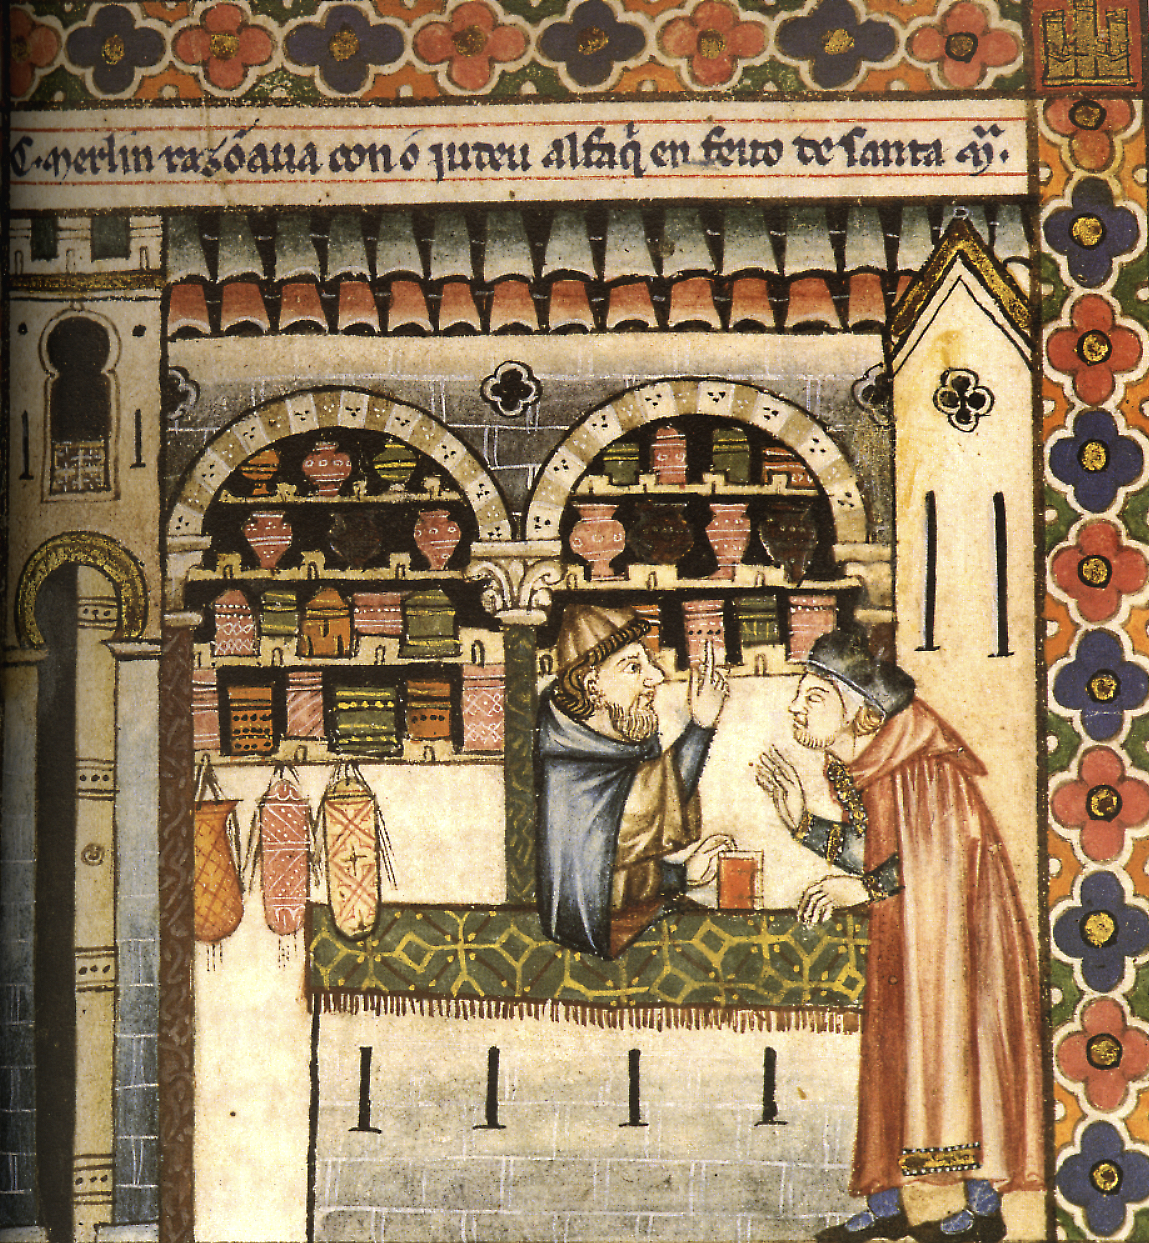 C. Merlin razõaua con o iudeu alfaq̃ en feito de santa Mª.